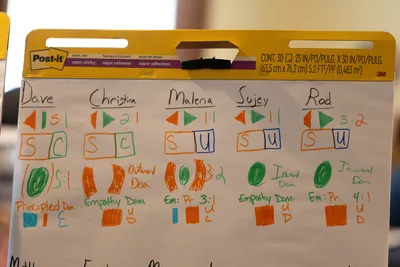 Post-it
super sticky
CONT. 30 25 IN/PO/PULG. X 30 IN/PO/PULG.
(63,5 cm x 76,2 cm) 5.2 FT²/PI² (0,483 m²)
Dave Christina Malena Sujey Rod
5:1 2:1 1:1 1:1 3:2
S C S C S U S U S U
5:1 Outward Dom 3:2 Inward Dom Inward Dom
Principled Dom Empathy Dom Em: Pr 3:1 Empathy Dom Em: Pr 4:1
C E U D U D U D U D